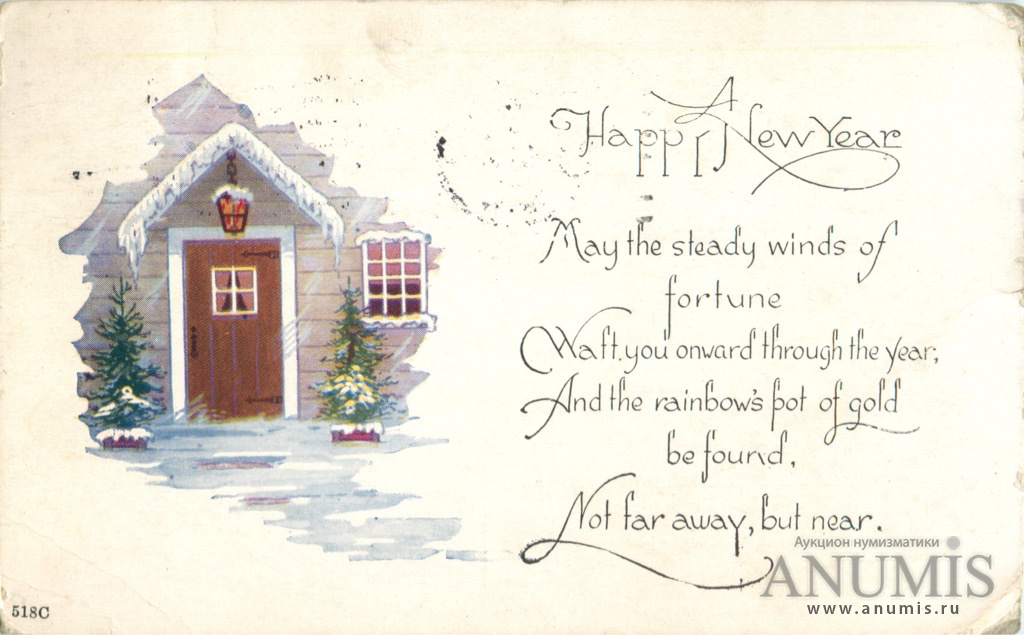 A Happy New Year
May the steady winds of
fortune
Waft you onward through the year;
And the rainbow's pot of gold
be found,
Not far away, but near.
518C
Аукцион нумизматики
ANUMIS
www.anumis.ru